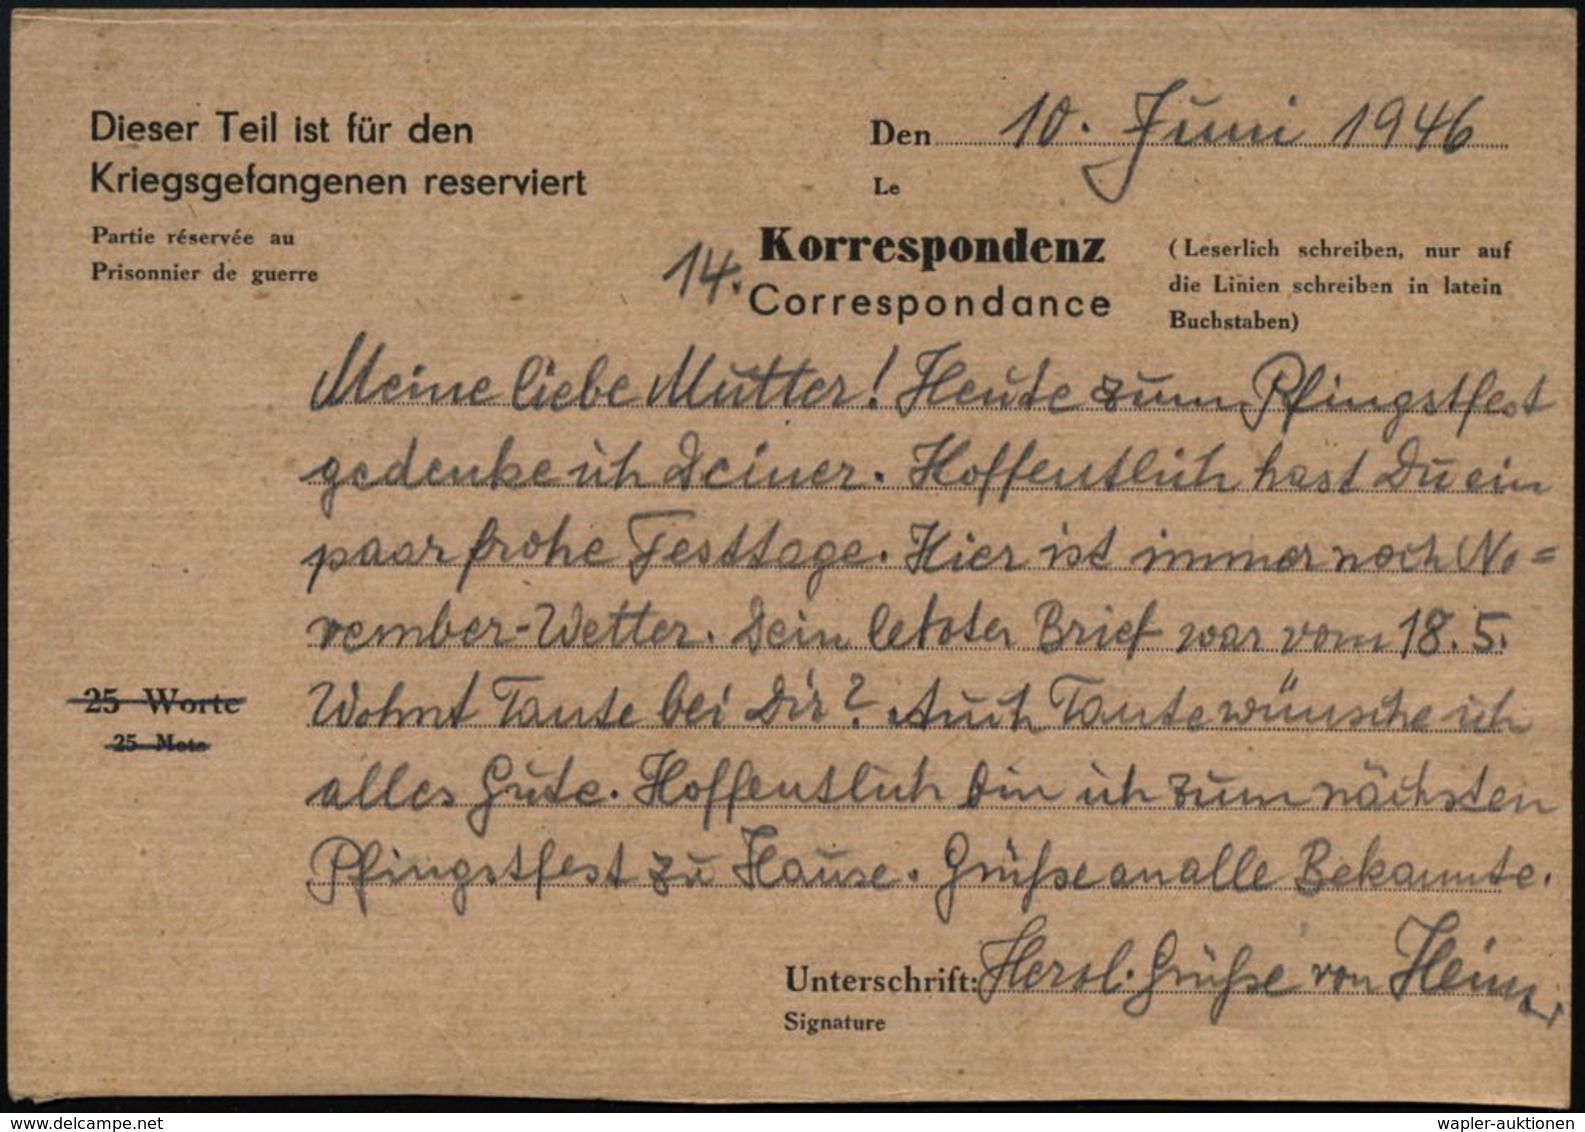 Dieser Teil ist für den
Kriegsgefangenen reserviert
Partie réservée au
Prisonnier de guerre
Den 10. Juni 1946
Le
14. Korrespondenz
Correspondance
(Leserlich schreiben, nur auf
die Linien schreiben in latein
Buchstaben)
Meine liebe Mutter! Heute zum Pfingstfest
gedenke ich Deiner. Hoffentlich hast Du ein
paar frohe Festtage. Hier ist immer noch No=
vember-Wetter. Dein letzter Brief war vom 18.5.
25 Worte
25 Mots
Wohnt Tante bei Dir? Auch Tante wünsche ich
alles Gute. Hoffentlich bin ich zum nächsten
Pfingstfest zu Hause. Grüße an alle Bekannte.
Unterschrift: Herzl. Grüße von
Signature
wapler-auktionen
delcampe.net